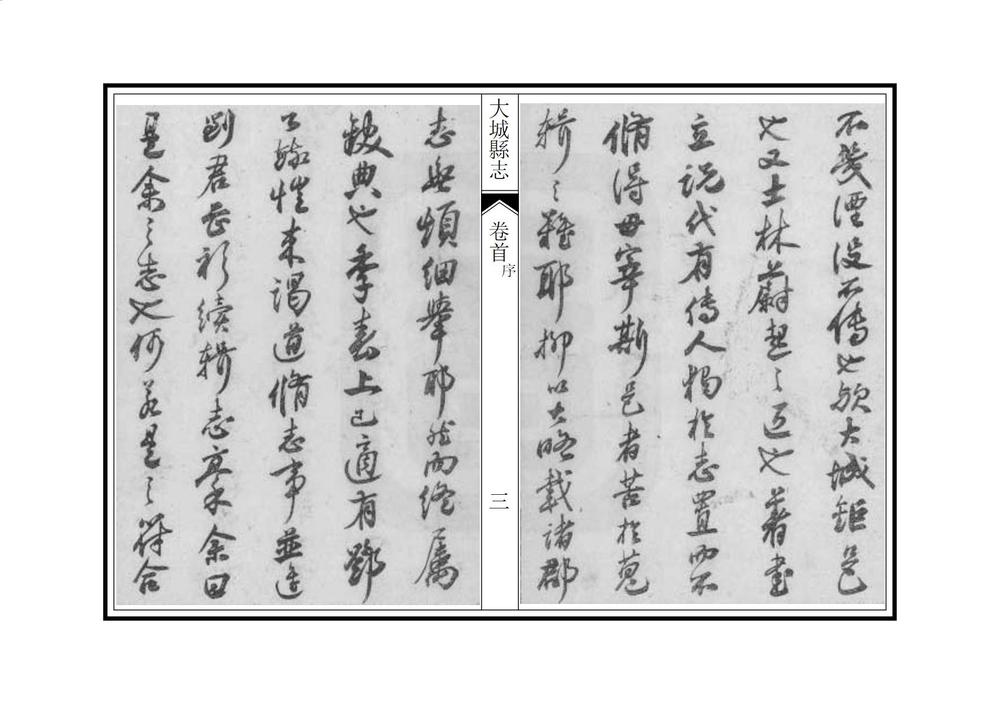 不幾湮沒不傳也歟大城鉅邑
也又士林蔚起之區也著書
立說代有傳人獨於志置而不
脩得毋宰斯邑者苦於蒐
輯之難耶抑以大略載諸郡
大城縣志
卷首
序
三
志無煩細舉耶然而終屬
缺典也季春上巳適有鄧
來謁道脩志事並述
劉君正衫續輯志稾余曰
是余之志也何若是之符合